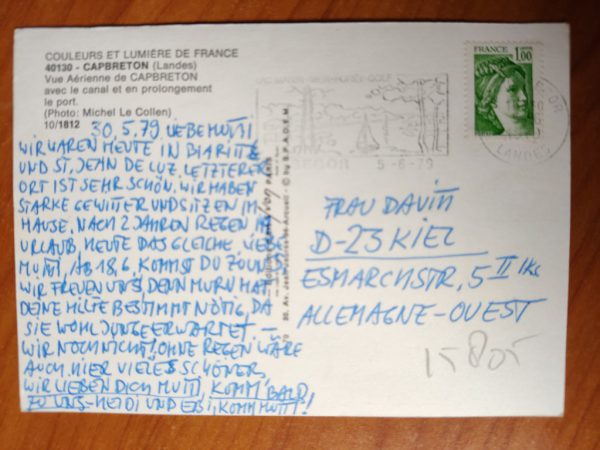 COULEURS ET LUMIÈRE DE FRANCE
40130 - CAPBRETON (Landes)
Vue Aérienne de CAPBRETON
avec le canal et en prolongement
le port.
(Photo: Michel Le Collen)
10/1812
30.5.79 LIEBE MUTTI
WIR WAREN HEUTE IN BIARITZ
UND ST. JEAN DE LUZ. LETZTERER
ORT IST SEHR SCHÖN. WIR HABEN
STARKE GEWITTER UND SITZEN IM
HAUSE. NACH 2 JAHREN REGEN IM
URLAUB HEUTE DAS GLEICHE. LIEBE
MUTTI, AB 18.6. KOMMST DU ZU UNS.
WIR FREUEN UNS, DENN MURN HAT
DEINE HILFE BESTIMMT NÖTIG, DA
SIE WOHL JUNGE ERWARTET —
WIR NOCH NICHT! OHNE REGEN WÄRE
AUCH HIER VIELES SCHÖNER.
WIR LIEBEN DICH MUTTI, KOMM' BALD
ZU UNS - HEIDI UND EBI, KOMM MUTTI!
FRANCE
1,00
LANDES
5-6-79
FRAU DAVITT
D-23 KIEL
ESMARCHSTR. 5 II lks
ALLEMAGNE-OUEST